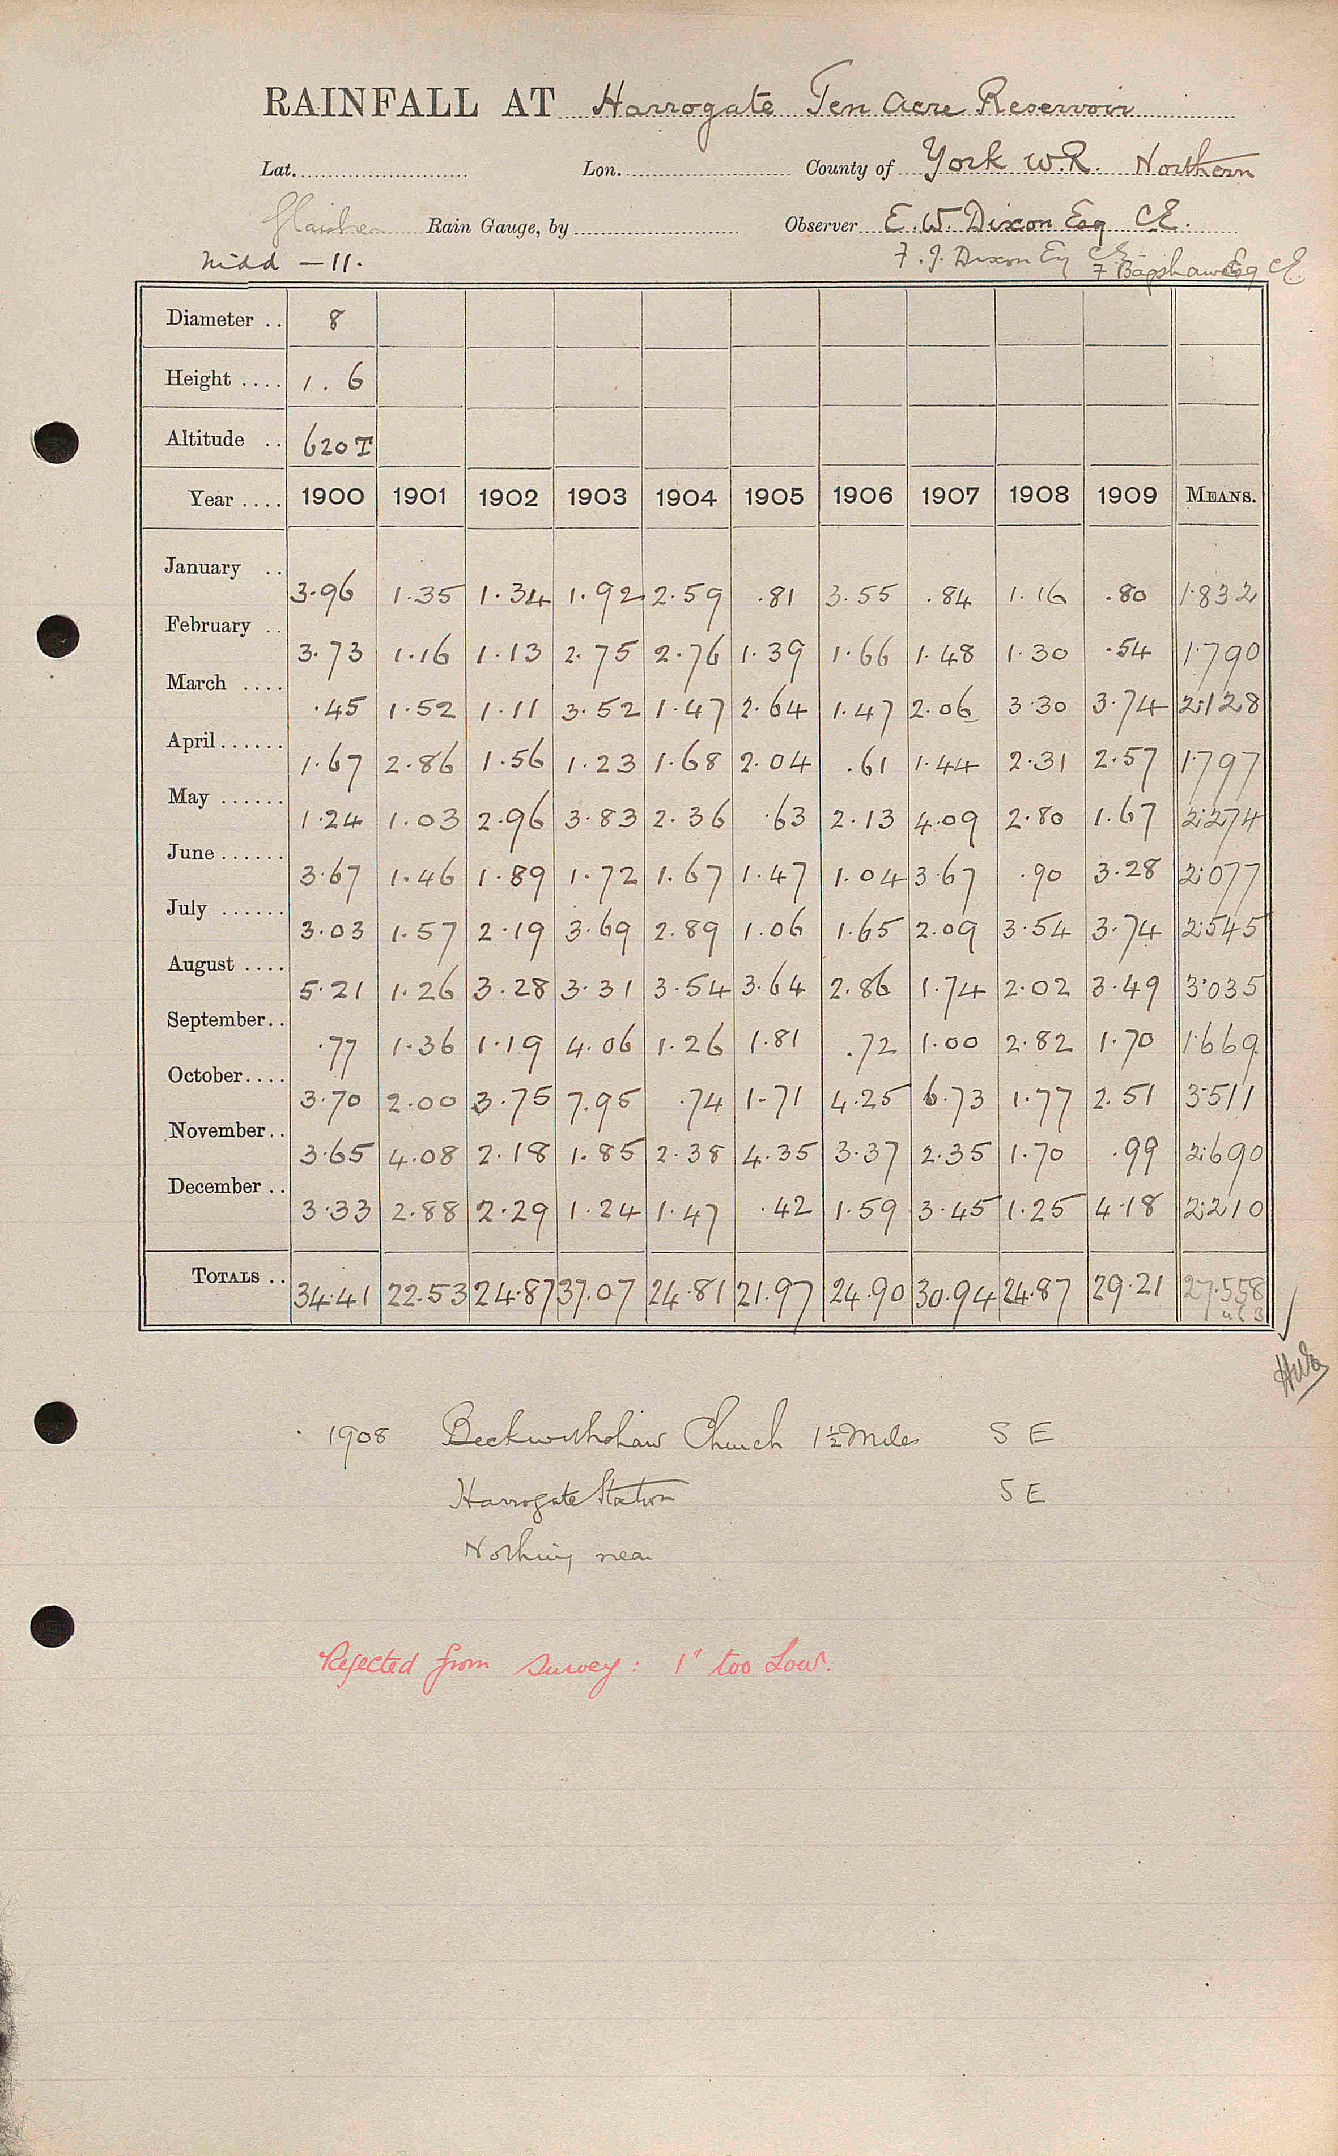 RAINFALL AT Harrogate Ten Acre Reservoir
Lat. Lon. County of York W.R. Northern
Glaisher Rain Gauge, by Observer E. W. Dixon Esq C.E.
Nidd - 11. F. J. Dixon Esq CE F Bagshaw Esq CE
Diameter .. 8
Height .... 1. 6
Altitude .. 620 T
Year .... 1900 1901 1902 1903 1904 1905 1906 1907 1908 1909 MEANS.
January .. 3.96 1.35 1.34 1.92 2.59 .81 3.55 .84 1.16 .80 1.832
February .. 3.73 1.16 1.13 2.75 2.76 1.39 1.66 1.48 1.30 .54 1.790
March .... .45 1.52 1.11 3.52 1.47 2.64 1.47 2.06 3.30 3.74 2.128
April ...... 1.67 2.86 1.56 1.23 1.68 2.04 .61 1.44 2.31 2.57 1.797
May ...... 1.24 1.03 2.96 3.83 2.36 .63 2.13 4.09 2.80 1.67 2.274
June ...... 3.67 1.46 1.89 1.72 1.67 1.47 1.04 3.67 .90 3.28 2.077
July ...... 3.03 1.57 2.19 3.69 2.89 1.06 1.65 2.09 3.54 3.74 2.545
August .... 5.21 1.26 3.28 3.31 3.54 3.64 2.86 1.74 2.02 3.49 3.035
September.. .77 1.36 1.19 4.06 1.26 1.81 .72 1.00 2.82 1.70 1.669
October.... 3.70 2.00 3.75 7.95 .74 1.71 4.25 6.73 1.77 2.51 3.511
November.. 3.65 4.08 2.18 1.85 2.38 4.35 3.37 2.35 1.70 .99 2.690
December .. 3.33 2.88 2.29 1.24 1.47 .42 1.59 3.45 1.25 4.18 2.210
TOTALS .. 34.41 22.53 24.87 37.07 24.81 21.97 24.90 30.94 24.87 29.21 27.558
1908 Beckwithshaw Church 1½ Miles S E
Harrogate Station S E
Nothing near
Rejected from survey: 1" too Low.